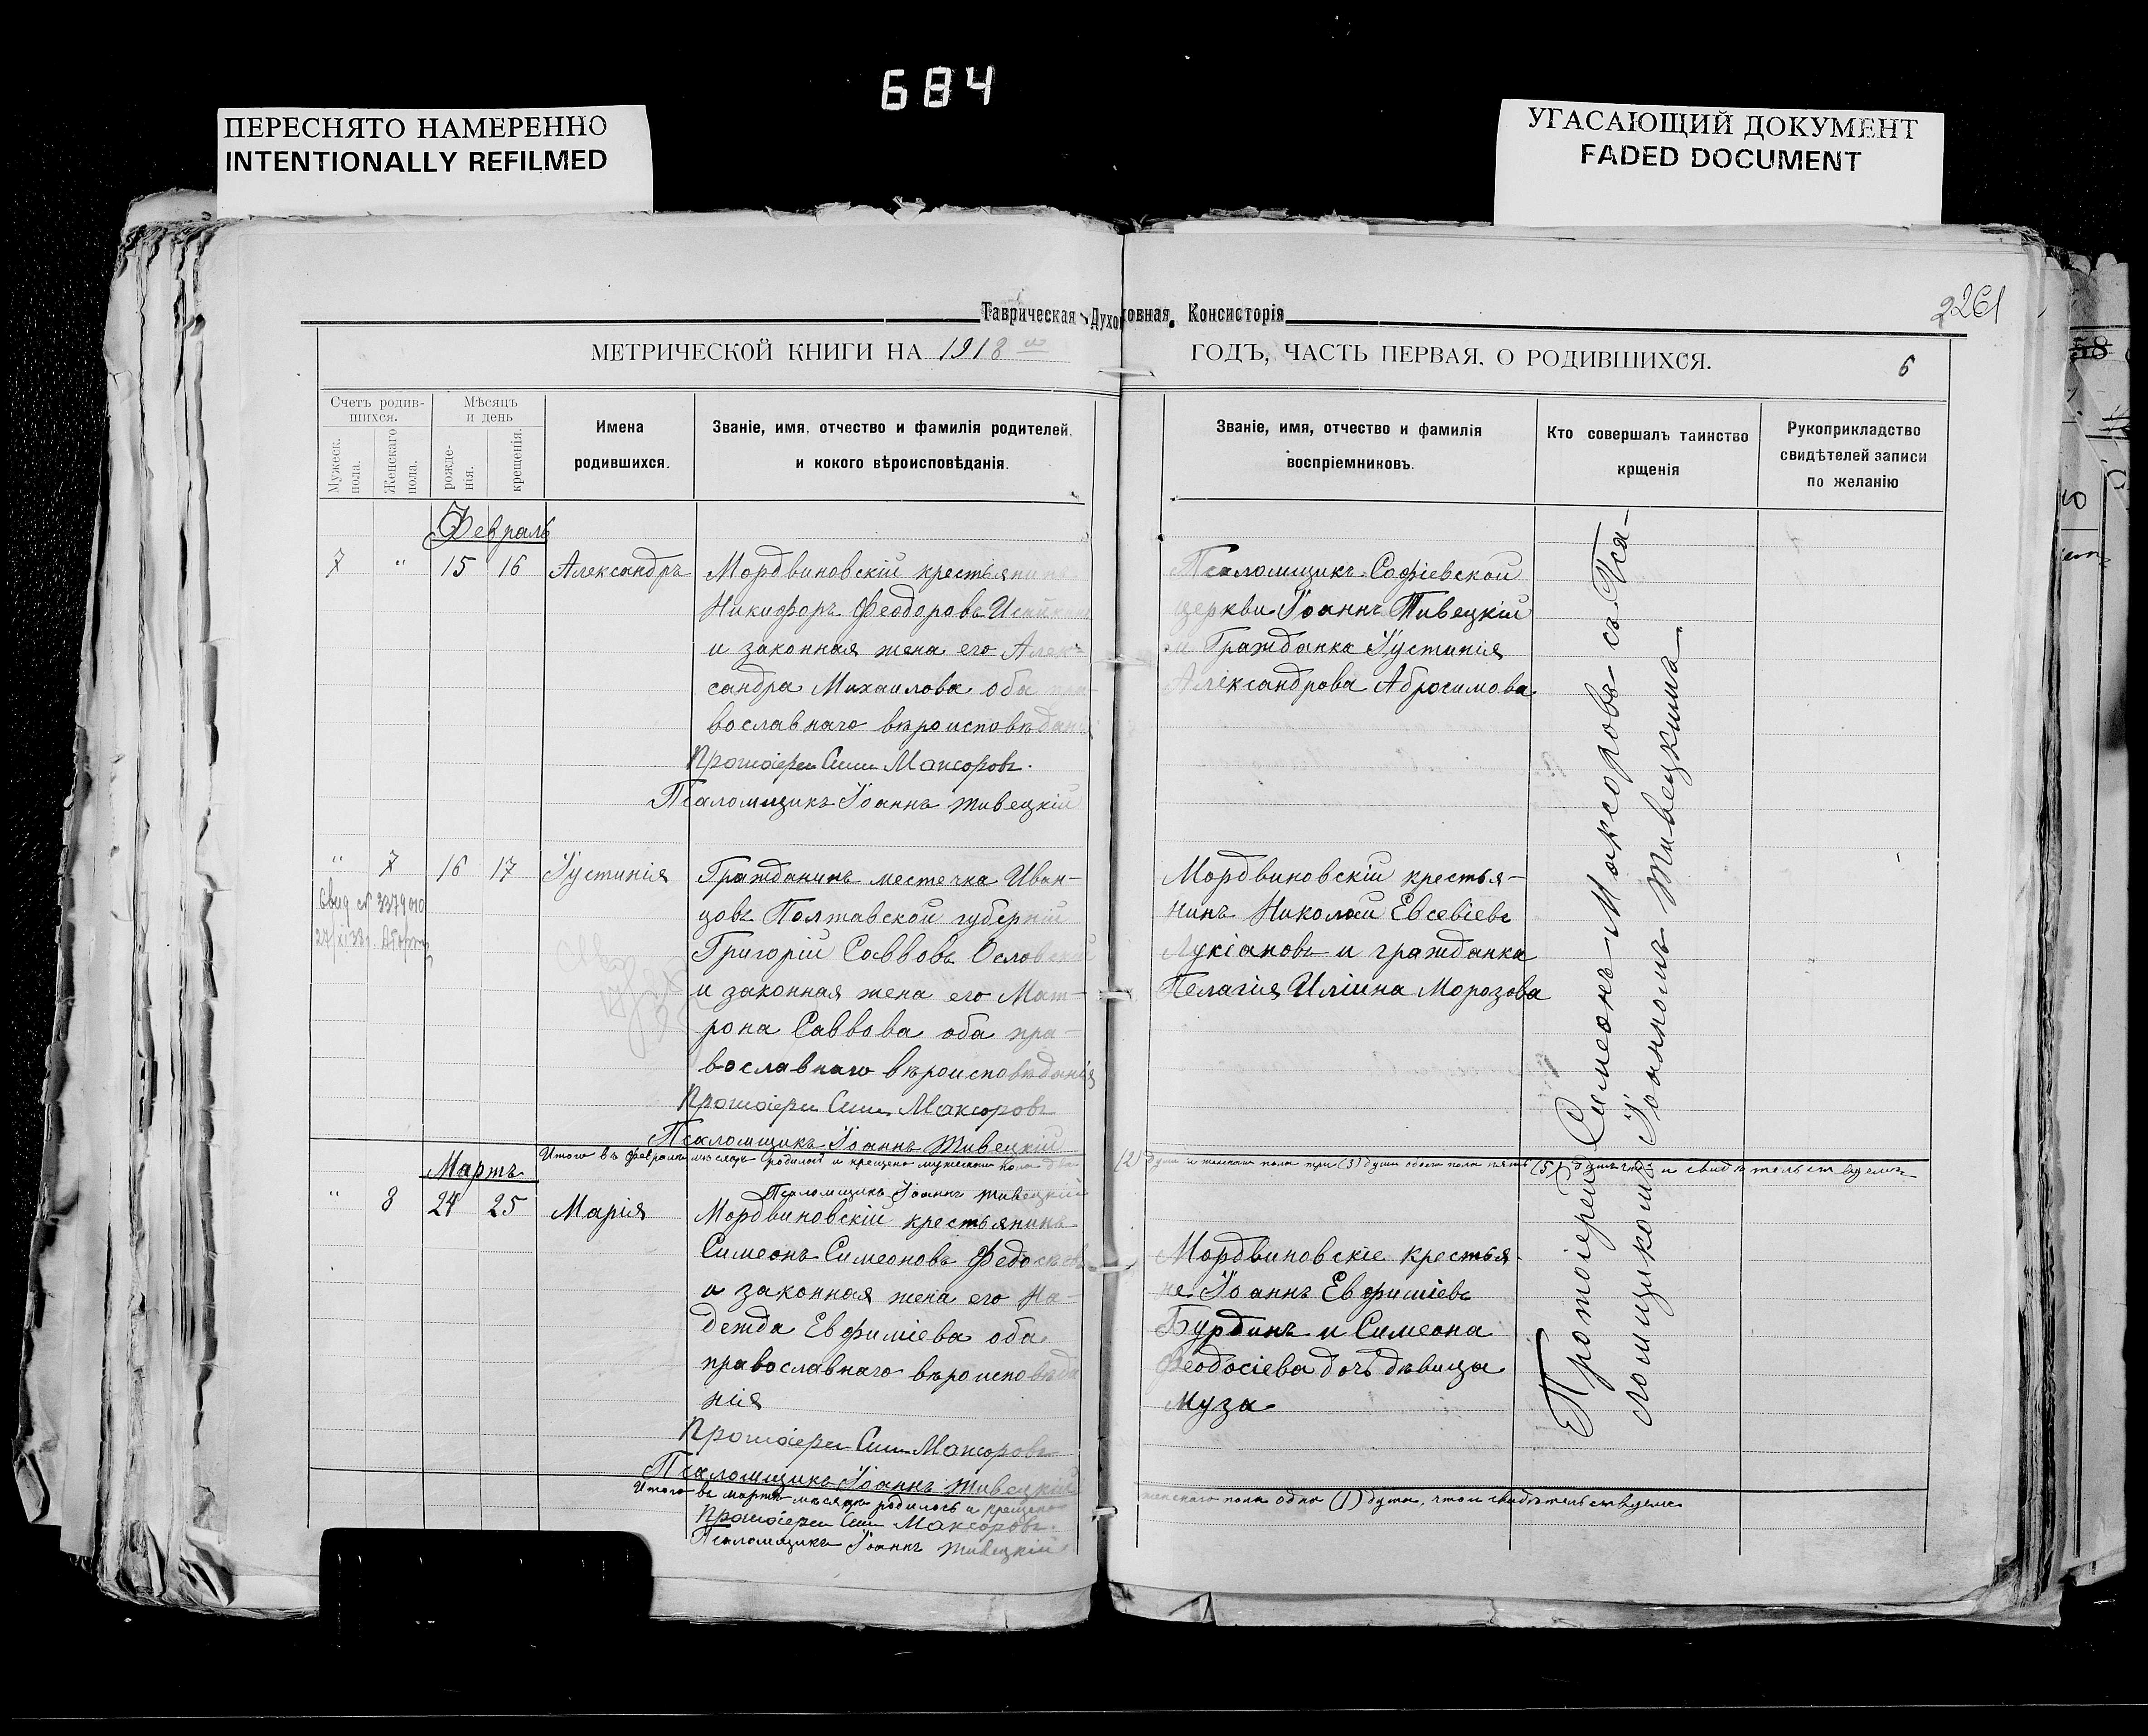 684
ПЕРЕСНЯТО НАМЕРЕННО
INTENTIONALLY REFILMED
УГАСАЮЩИЙ ДОКУМЕНТ
FADED DOCUMENT
Таврическая Духовная Консисторія
2261
МЕТРИЧЕСКОЙ КНИГИ НА 1918 ГОДЪ, ЧАСТЬ ПЕРВАЯ, О РОДИВШИХСЯ.
6
Счетъ родив-
шихся.
Мужеск. пола.
Женскаго пола.
Мѣсяцъ
и день
рожде-
нія.
крещенія.
Имена
родившихся.
Званіе, имя, отчество и фамилія родителей,
и кокого вѣроисповѣданія.
Званіе, имя, отчество и фамилія
воспріемниковъ.
Кто совершалъ таинство
крщенія
Рукоприкладство
свидѣтелей записи
по желанію
Февраль
7 " 15 16 Александръ
Мордвиновскій крестьянинъ
Никифоръ Феодоровъ
и законная жена его Алек-
сандра Михаилова оба пра-
вославнаго вѣроисповѣданія
Протоіерей Сим Максоровъ.
Псаломщикъ Іоаннъ Тивецкій
Псаломщикъ Софіевской
церкви Іоаннъ Тивецкій
и Гражданка Іустинія
Александрова Абросимова.
" 7 16 17 Іустинія
Свид № 3379010
Гражданинъ местечка Иван-
цовъ Полтавской губерніи
Григорій Саввовъ
и законная жена его Мат-
рона Саввова оба пра-
вославнаго вѣроисповѣданія
Протоіерей Сим Максоровъ
Псаломщикъ Іоаннъ Тивецкій
Мордвиновскій крестья-
нинъ Николай Евсевіевъ
Лукіановъ и гражданка
Пелагія Иліина Морозова
Итого въ феврале месяце родилось и крещено мужескаго пола два (2) души и женскаго пола три (3) души обоего пола пять (5) душъ что и свидѣтельствуемъ
Псаломщикъ Іоаннъ Тивецкій
Мартъ
" 8 24 25 Марія
Мордвиновскій крестьянинъ
Симеонъ Симеоновъ
и законная жена его На-
дежда Евфиміева оба
православнаго вѣроисповѣда
нія
Протоіерей Сим Максоровъ
Псаломщикъ Іоаннъ Тивецкій
Мордвиновскіе крестья-
не Іоаннъ Евфиміевъ
Бурдинъ и Симеона
Феодосіева дочь дѣвица
Муза
Итого въ мартѣ месяце родилось и крещено женскаго пола одна (1) душа, что и свидѣтельствуемъ
Протоіерей Сим Максоровъ.
Псаломщикъ Іоаннъ Тивецкій
Протоіерей Симеонъ Максоровъ съ Пса-
ломщикомъ Іоанномъ Тивецкимъ